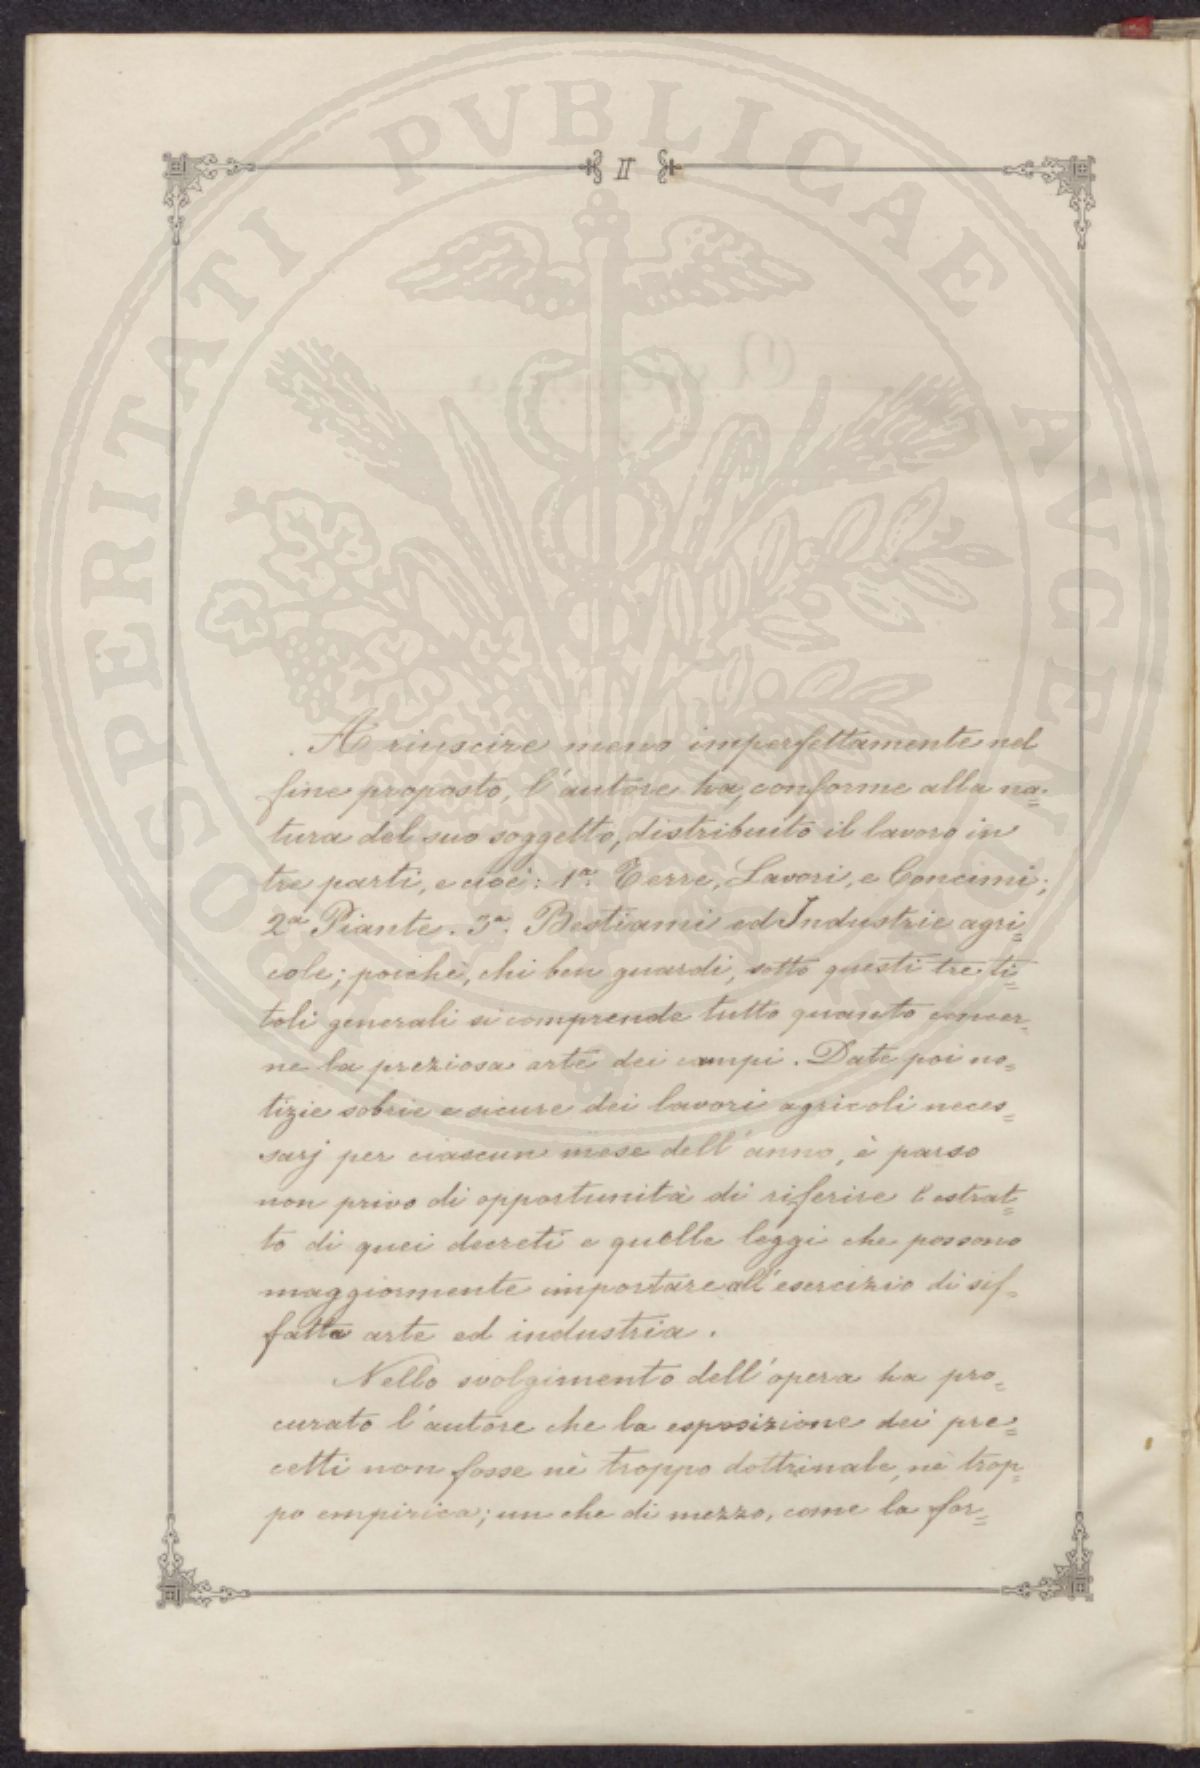 II
A riuscire meno imperfettamente nel
fine proposto, l'autore ha, conforme alla na=
tura del suo soggetto, distribuito il lavoro in
tre parti, e cioè: 1ª. Terre, Lavori, e Concimi;
2ª Piante. 3ª. Bestiami ed Industrie agri=
cole; poichè, chi ben guardi, sotto questi tre ti=
toli generali si comprende tutto quanto concer=
ne la preziosa arte dei campi. Date poi no=
tizie sobrie e sicure dei lavori agricoli neces=
sarj per ciascun mese dell'anno, è parso
non privo di opportunità di riferire l'estrat=
to di quei decreti e quelle leggi che possono
maggiormente importare all'esercizio di sif=
fatta arte ed industria.
Nello svolgimento dell'opera ha pro=
curato l'autore che la esposizione dei pre=
cetti non fosse nè troppo dottrinale, nè trop=
po empirica; un che di mezzo, come la for=
PROSPERITATI PVBLICAE AVGENDAE